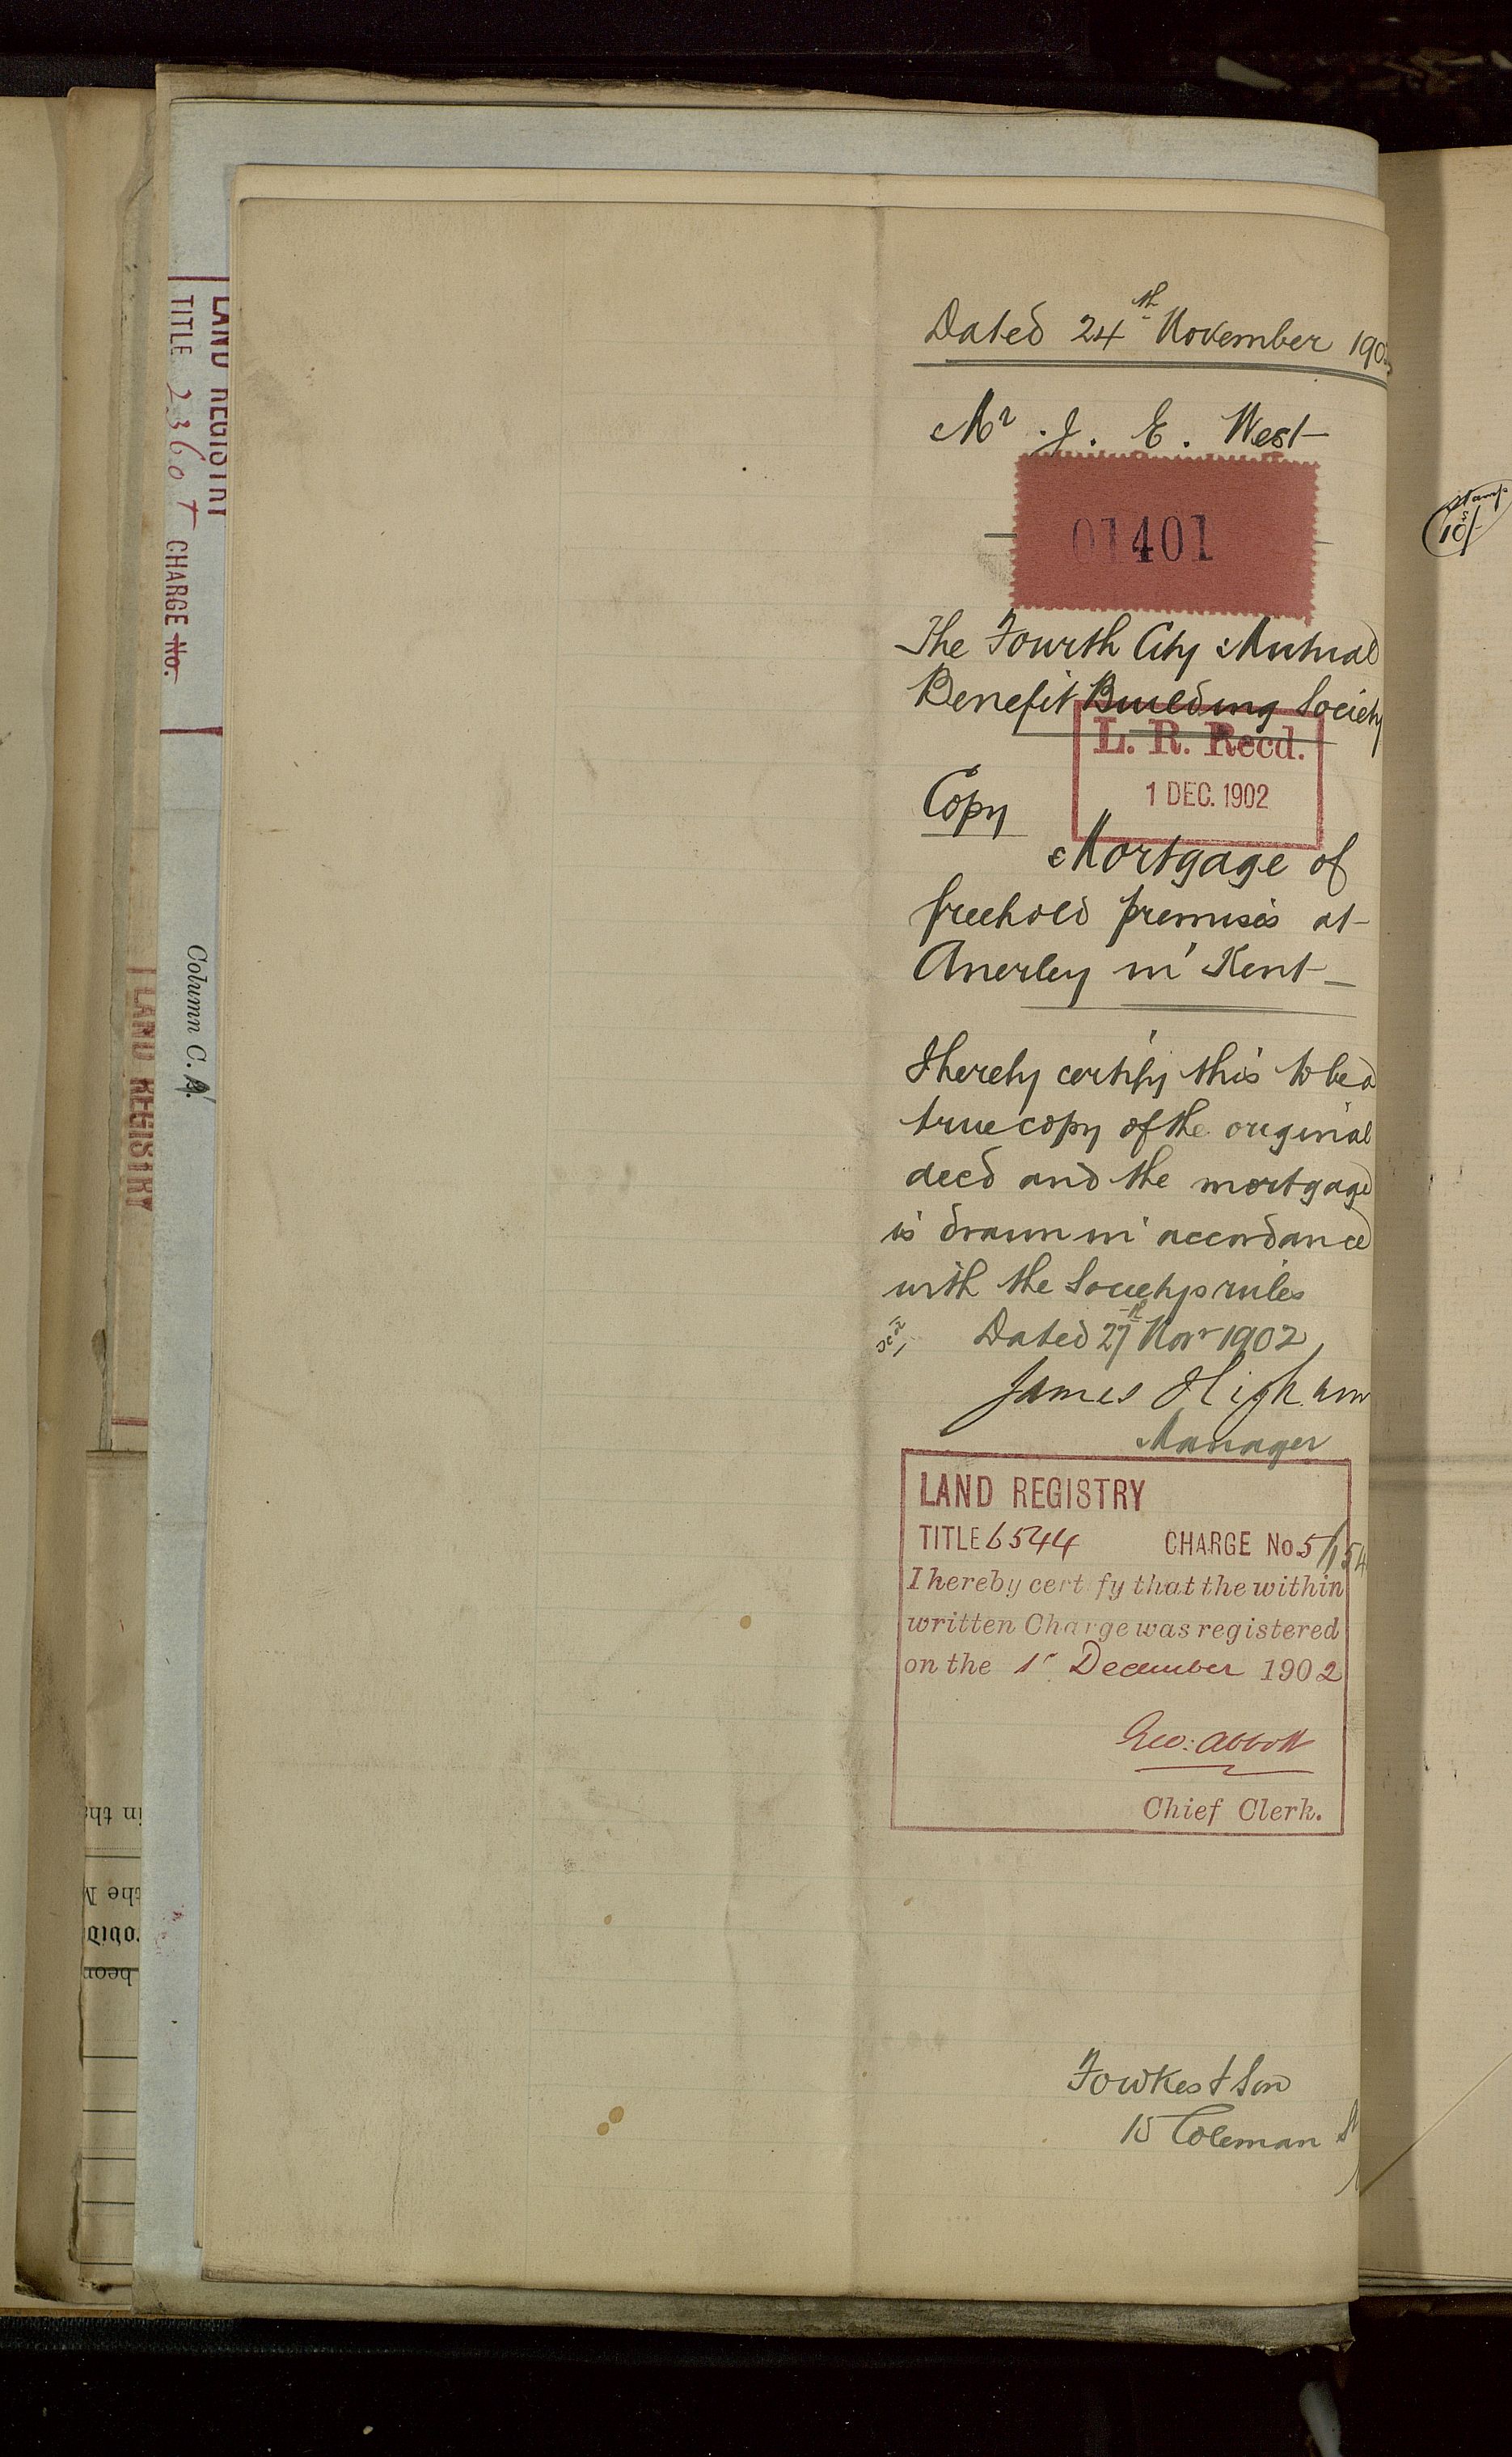 Dated 24th November 190
Mr. J. E. West
01401
The Fourth City Mutual
Benefit Building Society
L. R. Recd.
1 DEC. 1902
Copy
Mortgage of
freehold premises at
Anerley in Kent
I hereby certify this to be a
true copy of the original
deed and the mortgage
is drawn in accordance
with the Societys rules
Dated 27th Novr 1902
James Higham
Manager
LAND REGISTRY
TITLE 6544 CHARGE No 5/154
I hereby certify that the within
written Charge was registered
on the 1st December 1902
Geo: Abbott
Chief Clerk.
Fowkes & Son
15 Coleman St
LAND REGISTRY
TITLE 2360T CHARGE No.
Column C.
LAND REGISTRY
in th
the M
been
Stamp
10/-